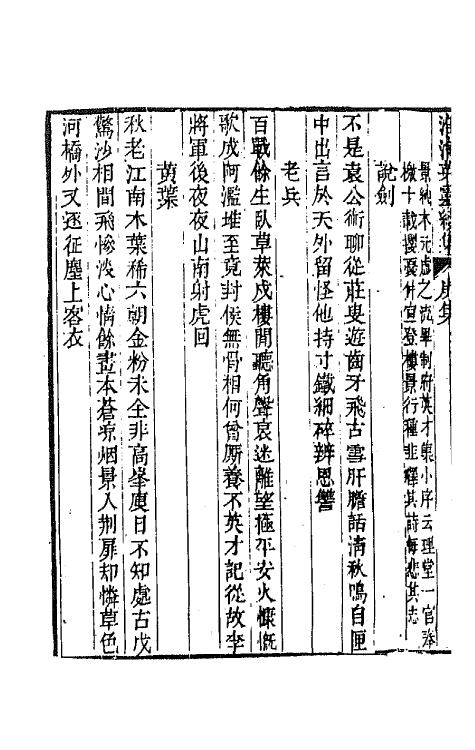 淮海英靈續集 庚集
景純木元虛之流畢制府英才集小序云理堂一官奉
檄十載攖憂仲宣登樓景行種
其詩每悲其志
說劍
不是袁公術聊從莊叟遊齒牙飛古雪肝膽話淸秋鳴自匣
中出言於天外留怪他持寸鐵細碎辨恩讐
老兵
百戰餘生臥草萊戍樓閒聽角聲哀迷離望極平安火慷慨
歌成阿濫堆至竟封侯無骨相何曾厮養不英才記從故李
將軍後夜夜山南射虎回
黃葉
秋老江南木葉稀六朝金粉未全非高峯庾日不知處古戍
驚沙相間飛慘淡心情餘畫本蒼凉烟景入荆扉却憐草色
河橋外又逐征塵上客衣